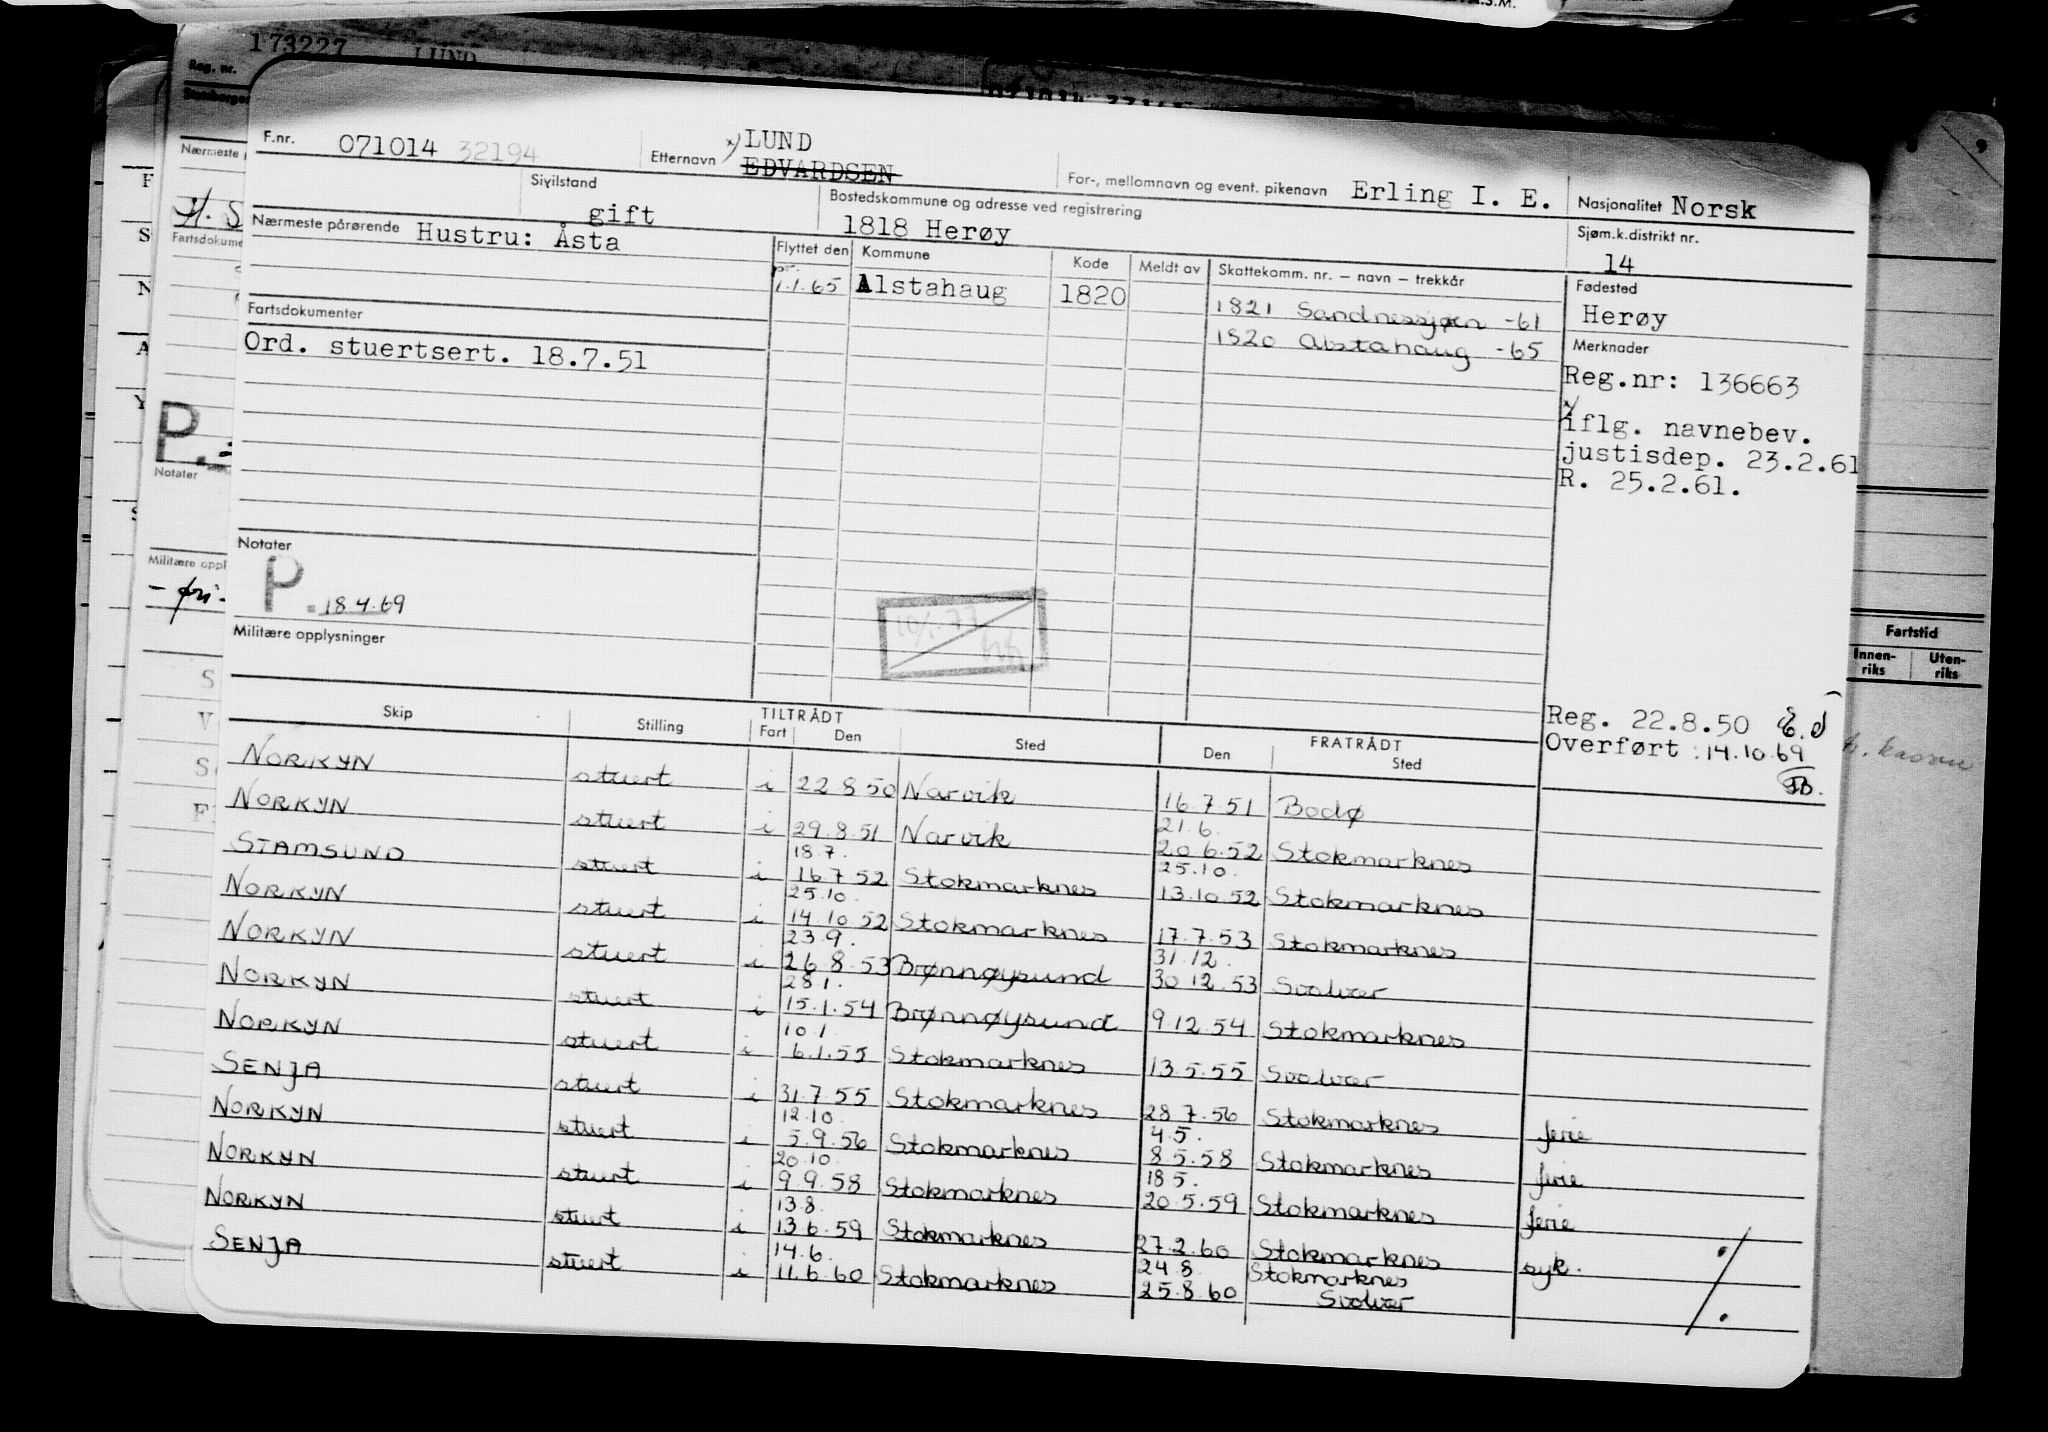 173227 LUND
Reg. nr.
F.nr. 071014 32194 Etternavn x) LUND
EDVARDSEN
For-, mellomnavn og event. pikenavn Erling I. E. Nasjonalitet Norsk
Sivilstand gift Bostedskommune og adresse ved registrering 1818 Herøy Sjøm.k.distrikt nr. 14
Nærmeste pårørende Hustru: Åsta
Flyttet den Kommune Kode Meldt av Skattekomm. nr. – navn – trekkår Fødested
1.1.65 Alstahaug 1820 1821 Sandnessjøen -61 Herøy
1820 Alstahaug -65
Fartsdokumenter
Ord. stuertsert. 18.7.51
Merknader
Reg.nr: 136663
x/
iflg. navnebev.
justisdep. 23.2.61
R. 25.2.61.
Notater
P. 18.4.69
Militære opplysninger
Reg. 22.8.50
Overført : 14.10.69
Skip Stilling TILTRÅDT Fart Den Sted FRATRÅDT Den Sted
NORKYN stuert i 22 8 50 Narvik 16.7.51 Bodø
NORKYN stuert i 29.8.51 Narvik 21.6. 20.6.52 Stokmarknes
STAMSUND stuert i 18.7. 16.7.52 Stokmarknes 25.10. 13.10.52 Stokmarknes
NORKYN stuert i 25.10. 14.10.52 Stokmarknes 17.7.53 Stokmarknes
NORKYN stuert i 23.9. 26.8.53 Brønnøysund 31.12. 30.12.53 Svolvær
NORKYN stuert i 28.1. 15.1.54 Brønnøysund 9.12.54 Stokmarknes
NORKYN stuert i 10.1 6.1.55 Stokmarknes 13.5.55 Svolvær
SENJA stuert i 31.7.55 Stokmarknes 28.7.56 Stokmarknes ferie
NORKYN stuert i 12.10. 5.9.56 Stokmarknes 4.5. 8.5.58 Stokmarknes ferie
NORKYN stuert i 20.10. 9.9.58 Stokmarknes 18.5. 20.5.59 Stokmarknes ferie
NORKYN stuert i 13.8. 13.6.59 Stokmarknes 27.2.60 Stokmarknes syk.
SENJA stuert i 14.6. 11.6.60 Stokmarknes 24.8. 25.8.60 Stokmarknes Svolvær
Nærmeste
Notater
Fartstid
Innen-
riks
Uten-
riks